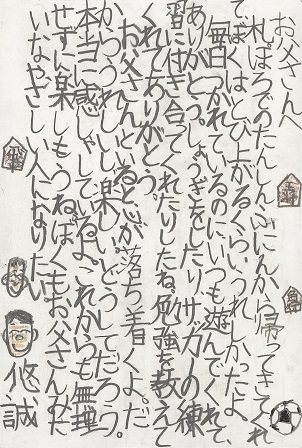 お父さんへ
札ぽろでのたんしんふにんから帰ってきてくれ
てぼくはとび上がるくらいうれしかったよ。
毎日つかれているのに、いつも遊んでくれて
ありがとう。しょうぎをしたりサッカーの練
習に付き合ってくれたりしたね。勉強を教えて
くれてありがとう。
お父さんといると心が落ち着くよ。だ
からうれしいし楽しい。どうしてだろう。
本当に感しゃしているよ。これからも無理
せずに楽しもうね。ぼくもお父さんみた
いなやさしい人になりたい。
悠誠